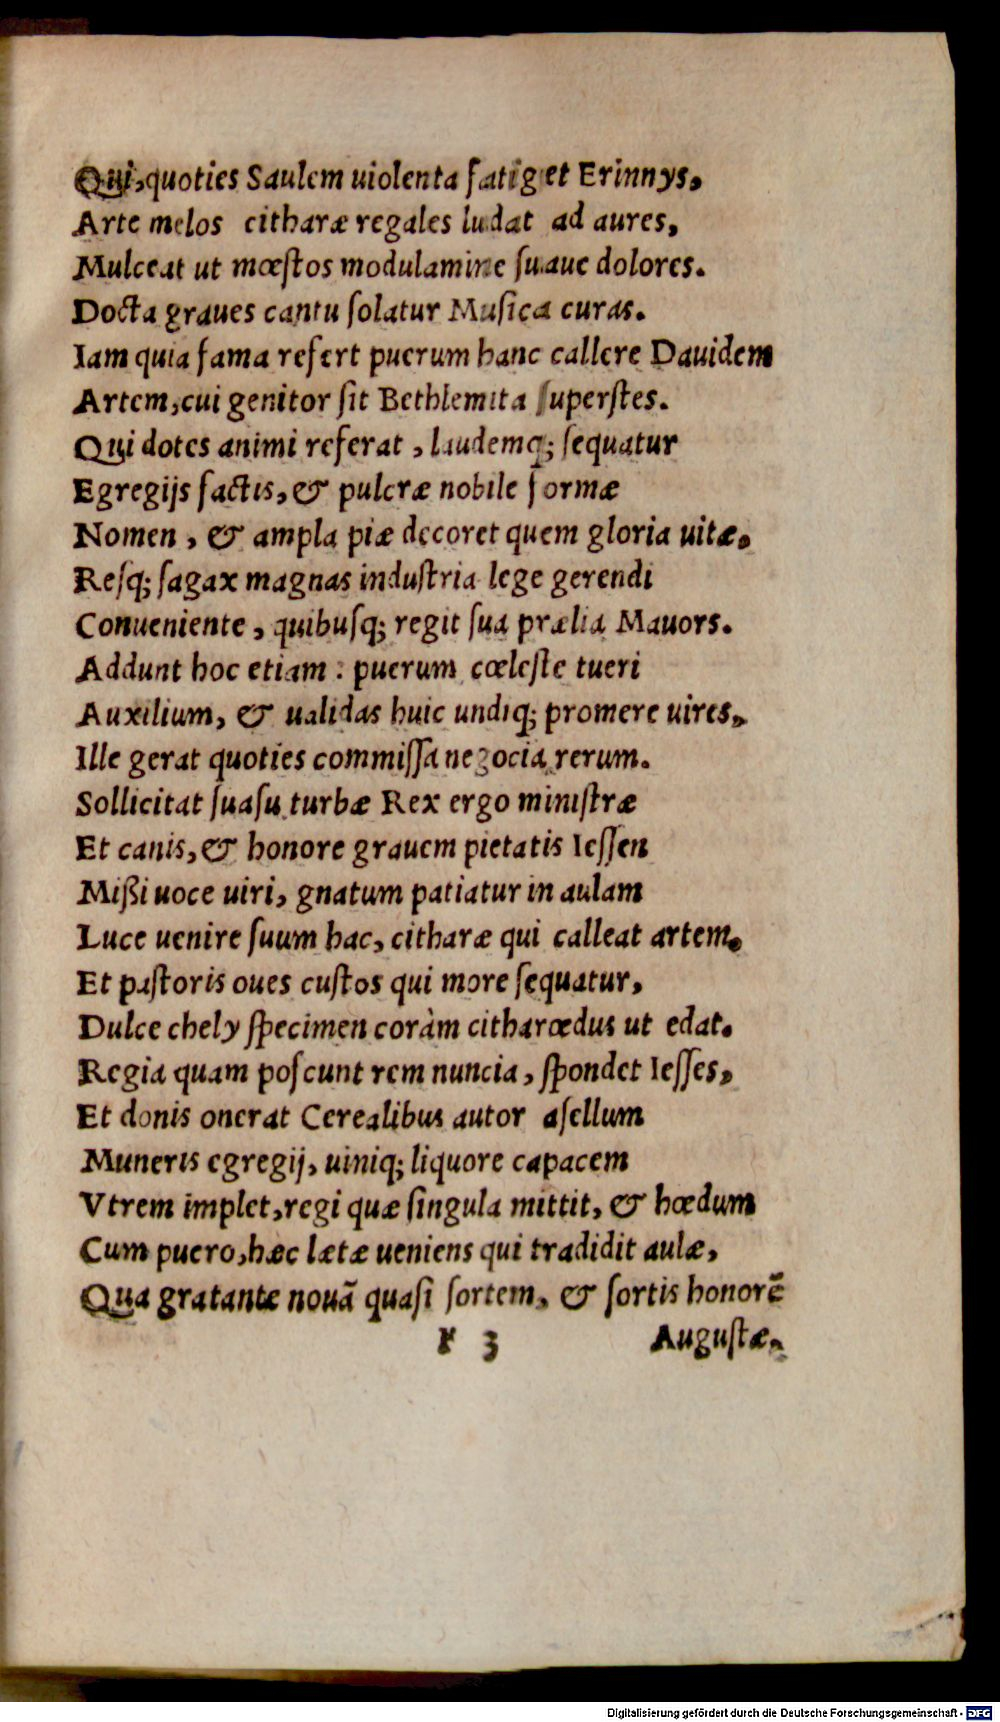 Qui, quoties Saulem uiolenta fatiget Erinnys,
Arte melos citharæ regales ludat ad aures,
Mulceat ut mœſtos modulamine ſuaue dolores.
Docta graues cantu ſolatur Muſica curas.
Iam quia fama refert puerum hanc callere Dauidem
Artem, cui genitor ſit Bethlemita ſuperſtes.
Qui dotes animi referat, laudemq; ſequatur
Egregijs factis, & pulcræ nobile formæ
Nomen, & ampla piæ decoret quem gloria uitæ.
Reſq; ſagax magnas induſtria lege gerendi
Conueniente, quibuſq; regit ſua prælia Mauors.
Addunt hoc etiam: puerum cœleſte tueri
Auxilium, & ualidas huic undiq; promere uires,
Ille gerat quoties commiſſa negocia rerum.
Sollicitat ſuaſu turbæ Rex ergo miniſtræ
Et canis, & honore grauem pietatis Ieſſen
Mißi uoce uiri, gnatum patiatur in aulam
Luce uenire ſuum hac, citharæ qui calleat artem.
Et paſtoris oues cuſtos qui more ſequatur,
Dulce chely ſpecimen coràm citharœdus ut edat.
Regia quam poſcunt rem nuncia, ſpondet Ieſſes,
Et donis onerat Cerealibus autor aſellum
Muneris egregij, uiniq; liquore capacem
Vtrem implet, regi quæ ſingula mittit, & hœdum
Cum puero, hæc lætæ ueniens qui tradidit aulæ,
Qua gratante nouā quaſi ſortem, & ſortis honorē
F 3 Auguſtæ,
Digitalisierung gefördert durch die Deutsche Forschungsgemeinschaft - DFG